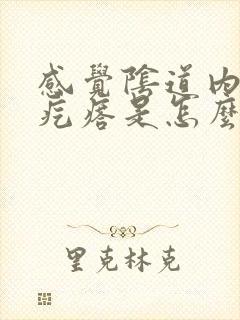 感覺陰道內
疙瘩是怎麼
里克林克